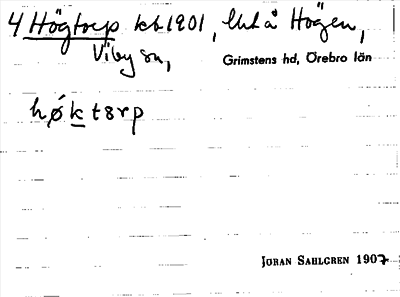 4 Högtorp kb 1901, Högen,
Viby sn, Grimstens hd, Örebro län
hǿktɞrp
JÖRAN SAHLGREN 1907